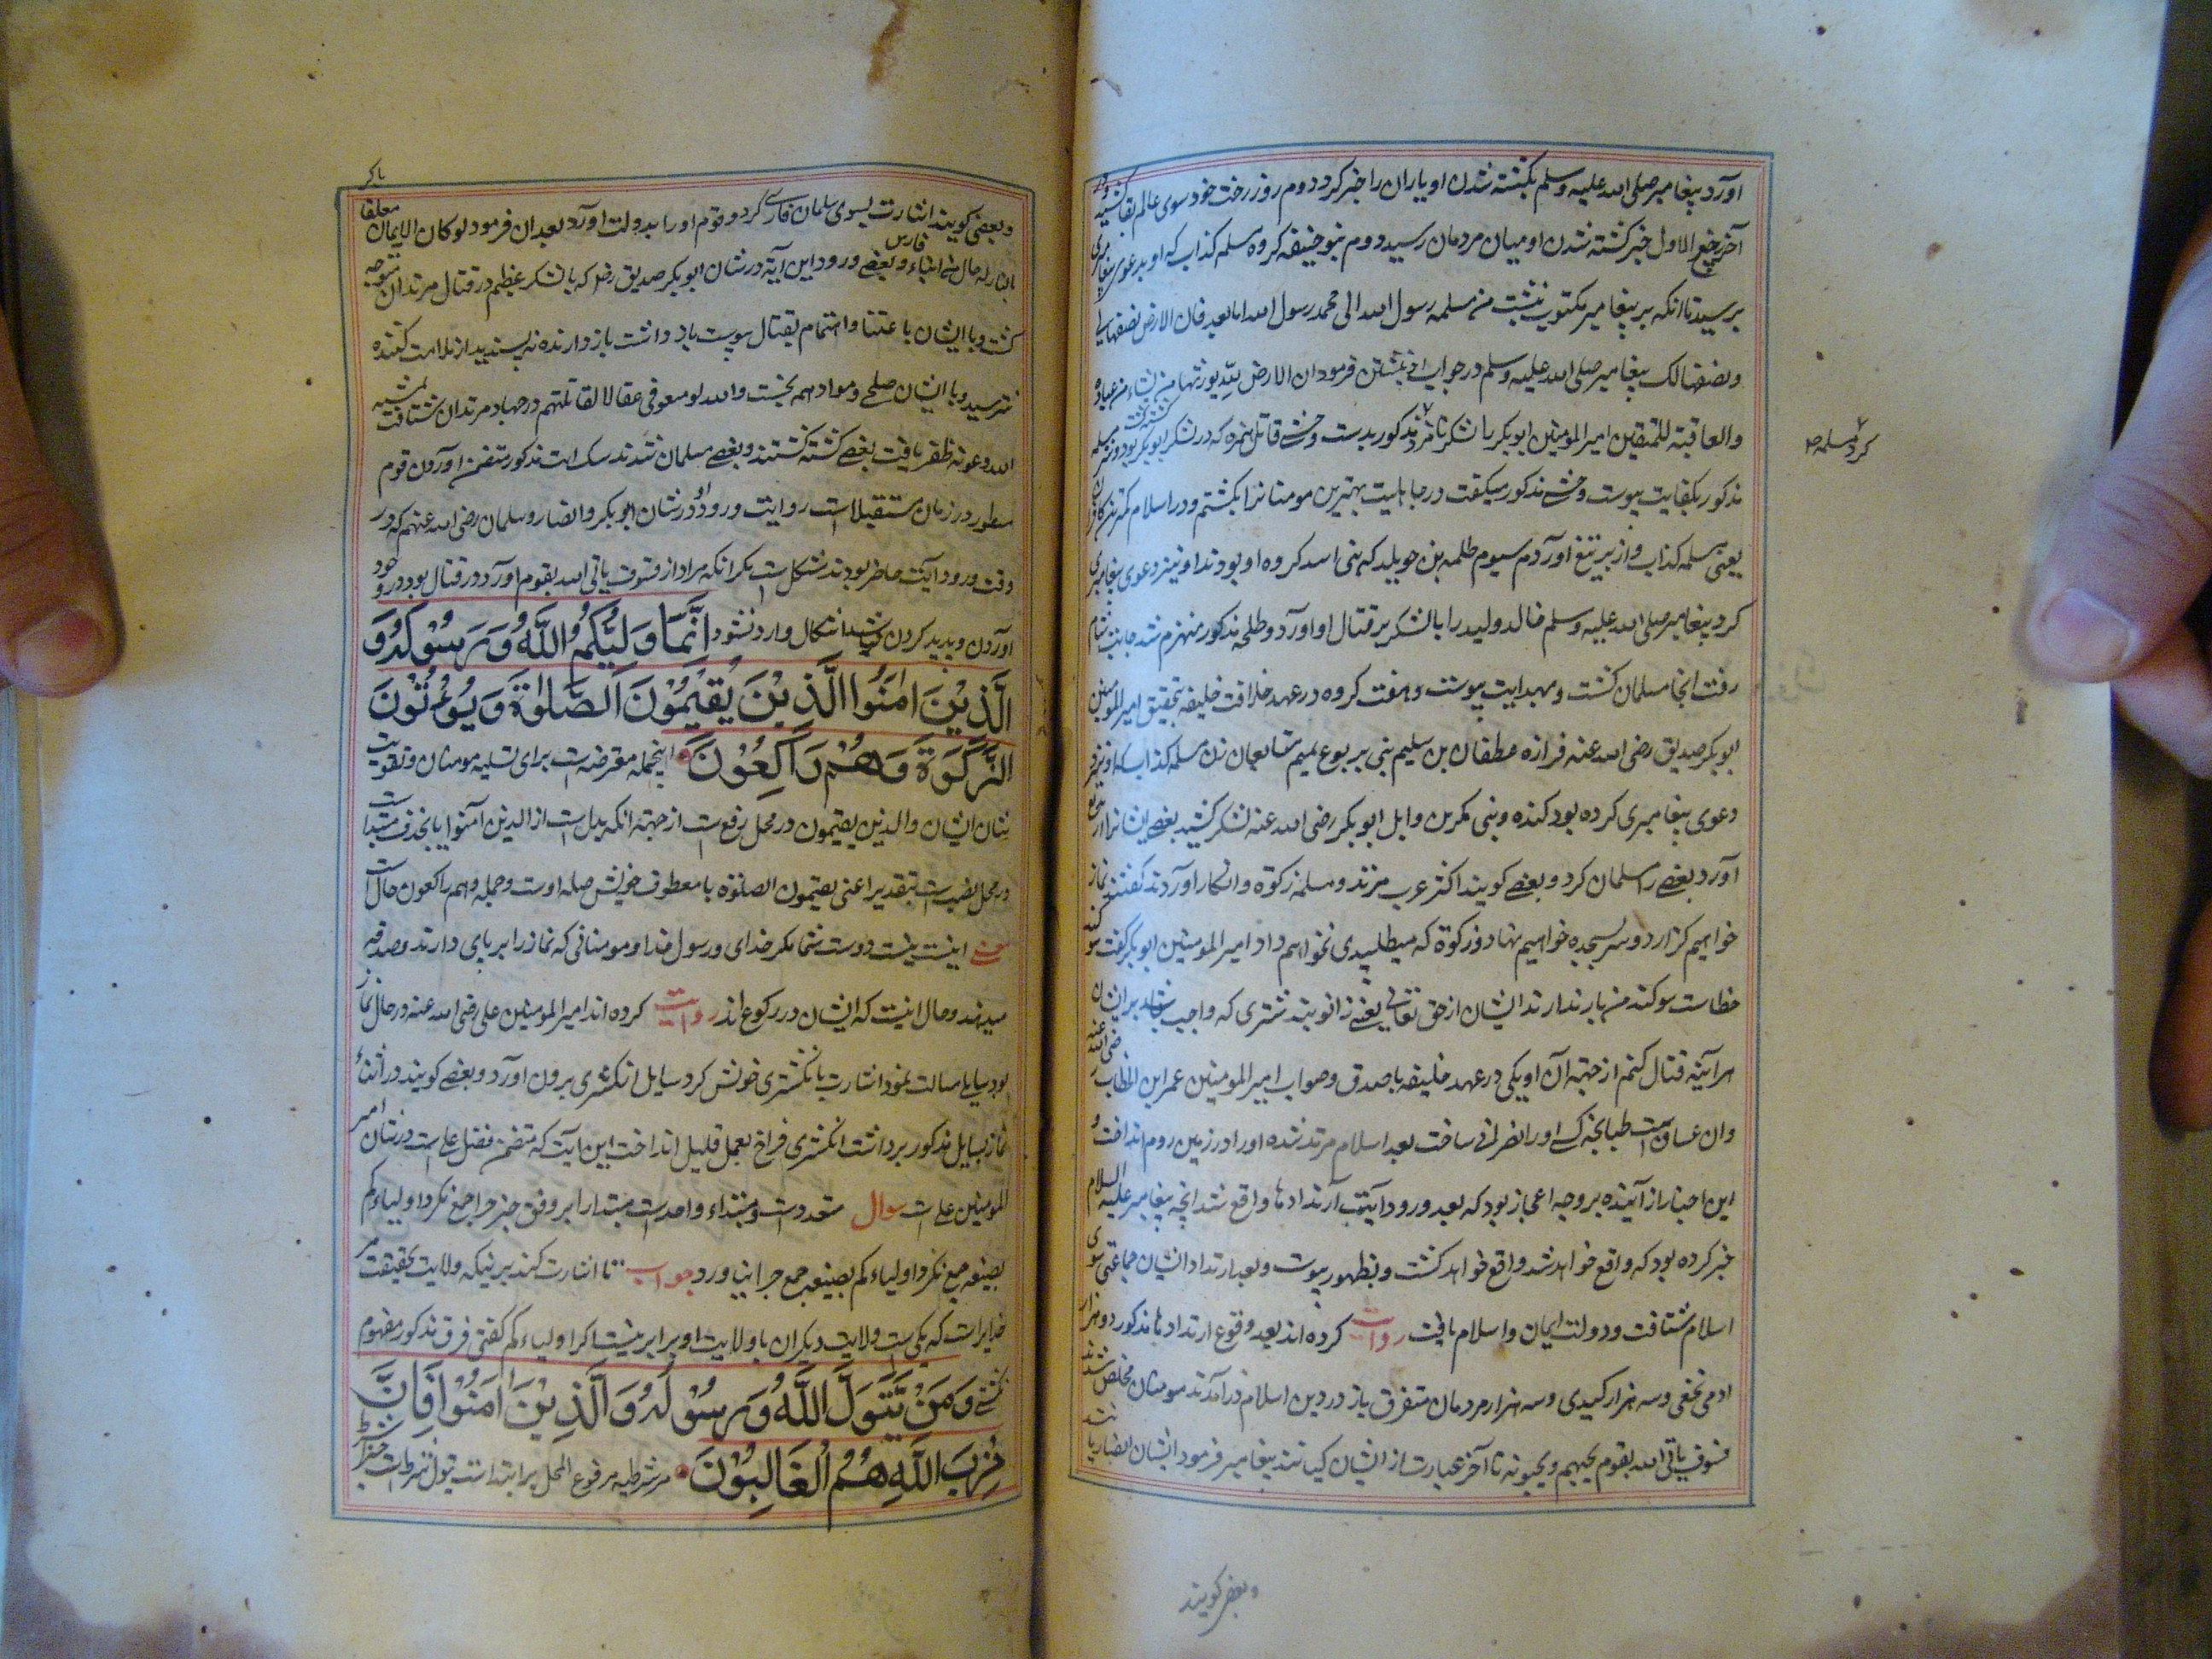 اورد پیغامبر صلی الله علیه وسلم بکشته شدن او یاران را خبر کرد دوم روز رخت خود سوی عالم بقا کشید و در
آخر ربیع الاول خبر کشته شدن او میان مردمان رسید دوم بنو حنیفه کروه مسلمه کذاب که او بدعوی پیغامبری
برسید تا انکه بر پیغامبر مکتوب نبشت من مسلمه رسول الله الی محمد رسول الله اما بعد فان الارض نصفها لی
ونصفها لک پیغامبر صلی الله علیه وسلم در جواب او نبشتن فرمود ان الارض لله یورثها من یشاء من عباده
والعاقبة للمتقین امیر المؤمنین ابو بکر با لشکر نامزد مذکور بدست وحشی قاتل حمزه که در لشکر ابو بکر بود
کرد مسلمه
مذکور بکفایت پیوست وحشی مذکور میکفت در جاهلیت بهترین مومنانرا بکشتم و در اسلام کمترین کافران
یعنی مسلمه کذاب و از بیر تیغ اوردم سیوم طلحه بن خویلد که بنی اسد کروه او بودند او نیز دعوی پیغامبری
کرد پیغامبر صلی الله علیه وسلم خالد ولید را با لشکر بر قتال او اورد و طلحه مذکور منهزم شد جانب شام
رفت انجا مسلمان کشت و بهدایت پیوست و هفت کروه در عهد خلافت خلیفه بتحقیق امیر المومنین
ابو بکر صدیق رضی الله عنه فرازه عطفان بن سلیم بنی یربوع تمیم متابعان زن مسلمه کذاب که او نیز
دعوی پیغامبری کرده بود کنده و بنی بکر بن وایل ابو بکر رضی الله عنه لشکر کشید بعضی ایشانرا در
آورد بعضی را مسلمان کرد و بعضی کویند اکثر عرب مرتد و مسلمه زکوة و انکار آوردند کفتند نماز
خواهیم کزارد و سر بسجده خواهیم نهاد و زکوة که میطلبیدی نخواهم داد امیر المومنین ابو بکر کفت
خطاست سوکند منهار ندارند ایشان از حق تعالی یعنی زانو بند شتری که واجب باشد بر ایشان
هر آینه قتال کنم از جهة آن او یکی در عهد خلیفه با صدق و صواب امیر المومنین عمر ابن الخطاب رضی الله عنه
وان غسان است طبانچه کسی او را نصرانی ساخت بعد اسلام مرتد شده او را در زمین روم انداخت و
این اخبار از آینده بر وجه اعجاز بود که بعد ورود آیت آن ارتدادها واقع شد انچه پیغامبر علیه السلام
خبر کرده بود که واقع خواهد شد واقع خواهد کشت و بظهور پیوست و بعد ارتداد ایشان جماعتی سوی
اسلام شتافت و دولت ایمان و اسلام یافت روایت کرده اند بعد وقوع ارتدادها مذکور دو هزار
ادمی نخعی و سه هزار کیندی و سه هزار مردمان متفرق باز در دین اسلام در آمدند مومنان مخلص شدند
فسوف یاتی الله بقوم یحبهم ویحبونه تا آخر عبارت از ایشان کیانند پیغامبر فرمود ایشان انصار یا
وبعضی کویند
وبعضی کویند اشارت بسوی سلمان فارسی کرد و قوم او را بدولت آورد بعد ان فرمود لو کان الایمان معلقا
بالثریا لناله رجال من ابناء فارس و بعضی ورود این آیة در شان ابو بکر صدیق رض که با لشکر عظیم در قتال مرتدان متوجه
کشت و با ایشان باعتنا و اهتمام بقتال پیوست باز داشت باز دارنده نه پسندید از ملامت کننده
نترسید و با ایشان صلحی و موادهمه نجست والله لو منعونی عقالا لقاتلتهم در جهاد مرتدان شتافت
الله وعونه ظفر یافت بعضی کشته کشتند و بعضی مسلمان شدند سک ایت مذکور متضمن اوردن قوم
مسطور در زمان مستقبلا است روایت ورود او در شان ابو بکر و انصار و سلمان رضی الله عنهم که در
وقت ورود آیت حاضر بودند مشکل است مکر انکه مراد از فسوف یاتی الله بقوم آورد در قتال بود در وجود
آوردن و پدید کردن باشد اشکال وارد نشود اِنَّمَا وَلِیُّکُمُ اللّٰهُ وَرَسُوْلُهُ وَ
الَّذِیْنَ اٰمَنُوا الَّذِیْنَ یُقِیْمُوْنَ الصَّلٰوةَ وَیُؤْتُوْنَ
الزَّکٰوةَ وَهُمْ رَاکِعُوْنَ اینجمله معترضه است برای تسلیه مومنان و تقویت
شان ایشان والذین یقیمون در محل رفع است از جهة انکه بدل است از الذین آمنوا یا بحذف مبتدا است
در محل نصب است بتقدیر اعنی یقیمون الصلوة با معطوف خویش صله اوست و جمله وهم راکعون حال است
معنی اینست نیست دوست شما مکر خدای و رسول خدا و مومنانی که نماز را بر پای دارند و صدقه
میدهند و حال اینست که ایشان در رکوع اند روایت کرده اند امیر المومنین علی رضی الله عنه در حال نماز
بود سایلی مسالت نمود اشارت بانکشتری خویش کرد سایل انکشتری بیرون آورد و بعضی کویند در اثناء
نماز بسایل مذکور برداشت انکشتری فراخ بعمل قلیل انداخت این آیت که متضمن فضل علی است در شان امیر
المومنین علی است سوال متعدد است و مبتداء واحد است مبتدا را بر وفق خبر چرا جمع نکرد اولیاءکم
بصیغه جمع نکرد اولیاءکم بصیغه جمع چرا نیاورد جواب تا اشارت کند بر نیکه ولایت بحقیقت مر
خدایراست که یکی است ولایت دیکران با ولایت او برابر نیست اکر اولیاءکم کفتی فرق مذکور مفهوم
نکشتی وَمَنْ یَّتَوَلَّ اللّٰهَ وَرَسُوْلَهُ وَالَّذِیْنَ اٰمَنُوْا فَاِنَّ
حِزْبَ اللّٰهِ هُمُ الْغَالِبُوْنَ من شرطیه مرفوع المحل بر ابتداست یتول شرط است